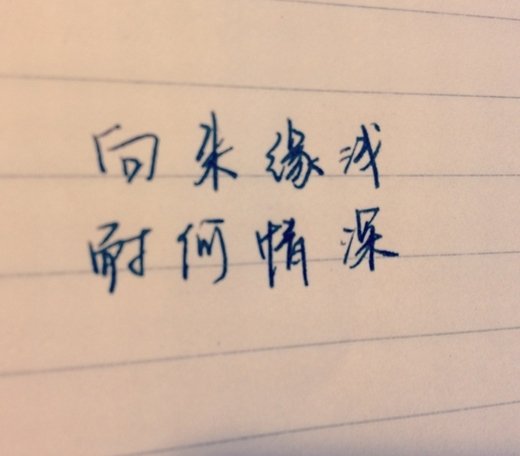 向来缘浅
耐何情深